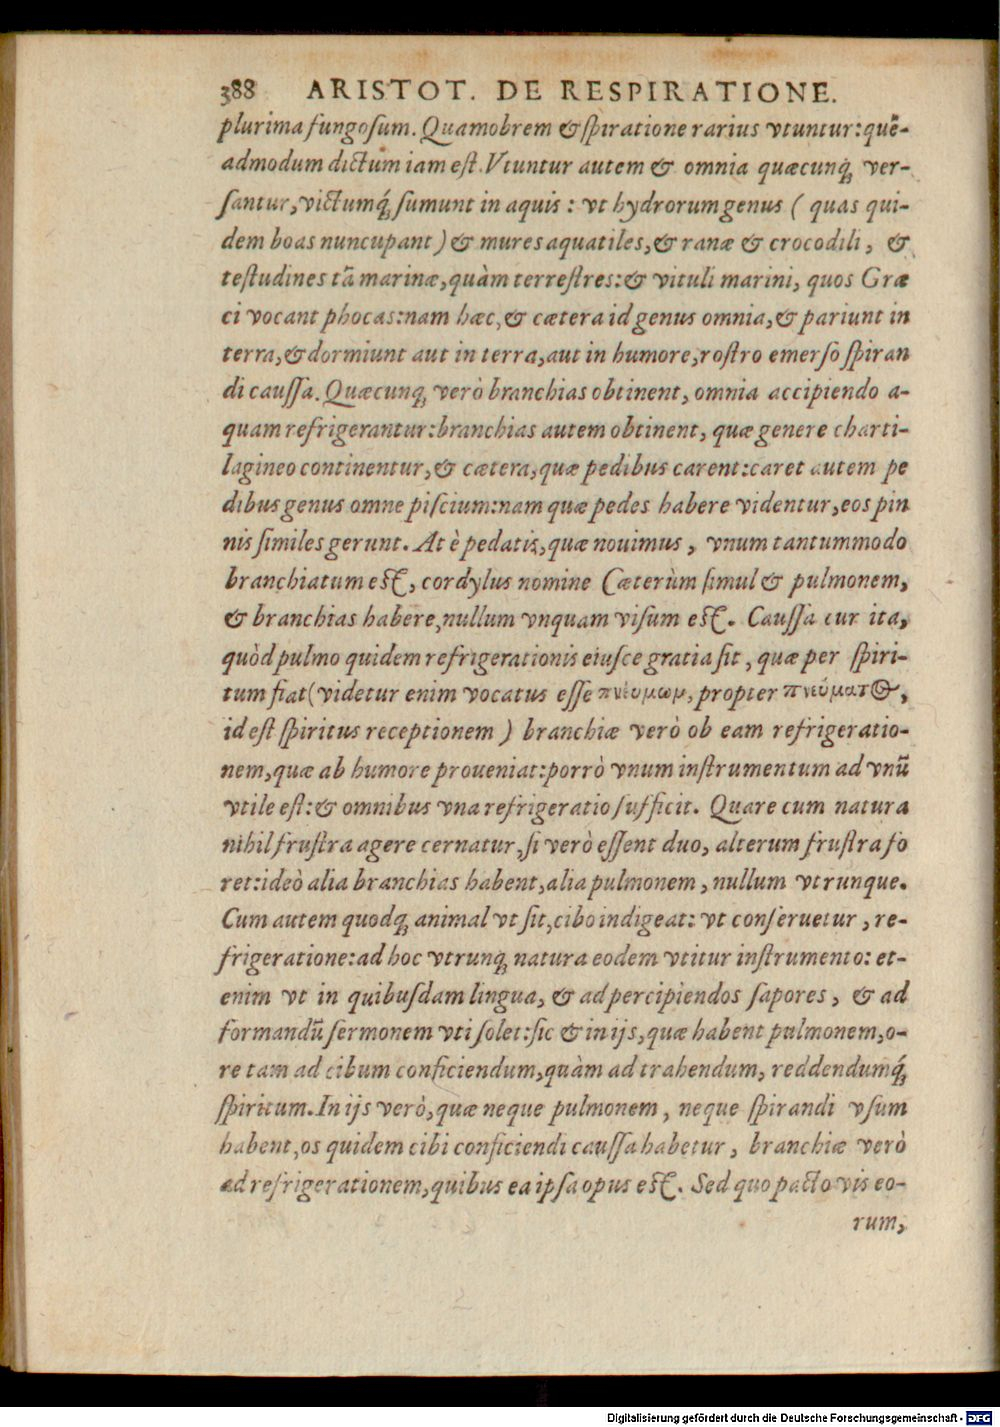 388 ARISTOT. DE RESPIRATIONE.
plurima fungosum. Quamobrem & spiratione rarius vtuntur: quē-
admodum dictum iam est. Vtuntur autem & omnia quæcunq́; ver-
santur, victumq́; sumunt in aquis: vt hydrorum genus ( quas qui-
dem boas nuncupant ) & mures aquatiles, & ranæ & crocodili, &
testudines tā marinæ, quàm terrestres: & vituli marini, quos Græ
ci vocant phocas: nam hæc, & cætera id genus omnia, & pariunt in
terra, & dormiunt aut in terra, aut in humore, rostro emerso spiran
di caussa. Quæcunq; verò branchias obtinent, omnia accipiendo a-
quam refrigerantur: branchias autem obtinent, quæ genere charti-
lagineo continentur, & cætera, quæ pedibus carent: caret autem pe
dibus genus omne piscium: nam quæ pedes habere videntur, eos pin
nis similes gerunt. At è pedatis, quæ nouimus, vnum tantummodo
branchiatum est, cordylus nomine Cæterùm simul & pulmonem,
& branchias habere, nullum vnquam visum est. Caussa cur ita,
quòd pulmo quidem refrigerationis eiusce gratia sit, quæ per spiri-
tum fiat ( videtur enim vocatus esse πνέυμωμ, propter πνεύματος,
id est spiritus receptionem ) branchiæ verò ob eam refrigeratio-
nem, quæ ab humore proueniat: porrò vnum instrumentum ad vnū
vtile est: & omnibus vna refrigeratio sufficit. Quare cum natura
nihil frustra agere cernatur, si verò essent duo, alterum frustra fo
ret: ideò alia branchias habent, alia pulmonem, nullum vtrunque.
Cum autem quodq; animal vt sit, cibo indigeat: vt conseruetur, re-
frigeratione: ad hoc vtrunq; natura eodem vtitur instrumento: et-
enim vt in quibusdam lingua, & ad percipiendos sapores, & ad
formandū sermonem vti solet: sic & in ijs, quæ habent pulmonem, o-
re tam ad cibum conficiendum, quàm ad trahendum, reddendumq́;
spiritum. In ijs verò, quæ neque pulmonem, neque spirandi vsum
habent, os quidem cibi conficiendi caussa habetur, branchiæ verò
ad refrigerationem, quibus ea ipsa opus est. Sed quo pacto vis eo-
rum,
Digitalisierung gefördert durch die Deutsche Forschungsgemeinschaft - DFG